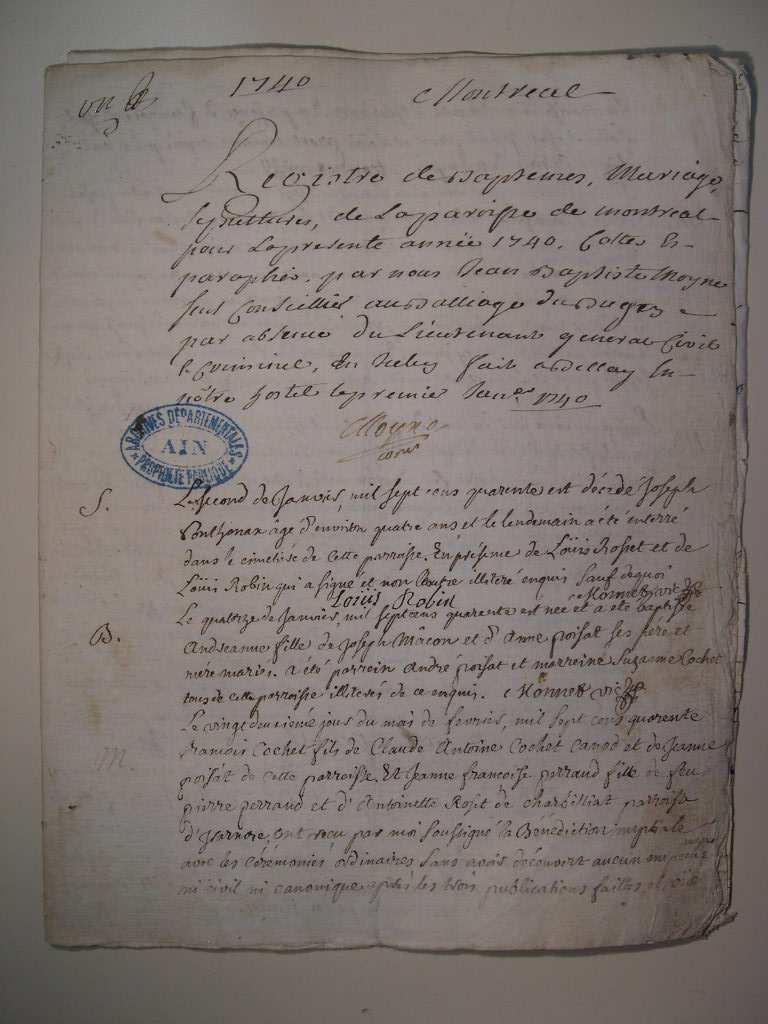 1740 Montreal
Registre de Baptemes, Mariage,
Sepultures, de La paroisse de montreal
pour La presente année 1740. Cottés Et
paraphés. par nous Jean Baptiste Moyne
seul Conseillier au Balliage du Bugey
par absence du Lieutenant general Civil
& Criminel, En Icelluy fait a Bellay En
nôtre hostel le premier Janer 1740
Moyne
ARCHIVES DÉPARTEMENTALES
AIN
PROPRIÉTÉ PUBLIQUE
S. Le second de Janvier, mil sept cens quarente est décédé Joseph
âgé d'environ quatre ans et le lendemain a été enterré
dans le cimetiére de cette parroisse. En présence de Loüis Rosset et de
Loüis Robin qui a signé et non l'autre illiteré enquis sauf dequoi
Loüis Robin Monnet vic
B. Le quatorze de Janvier, mil sept cens quarente est née et a été baptisée
Andreanne fille de Joseph Mâcon et d'Anne poisat ses pere et
mere mariés. a été parrein André poisat et marreine Suzanne Cochet
tous de cette parroisse illiterés de ce enquis. Monnet vic
M. Le vingt deuxiéme jour du mois de fevrier, mil sept cens quarente
francois Cochet fils de Claude Antoine Cochet Canod et de Jeanne
poisat de cette parroisse. Et Jeanne francoise perraud fille de feu
pierre perraud et d'Antoinette Roset de charbilliat parroisse
d'Izarnore ont reçu par moi soussigné la Bénédiction nuptiale
avec les cérémonies ordinaires sans avoir découvert aucun
ni civil ni canonique aprés les trois publications faittes